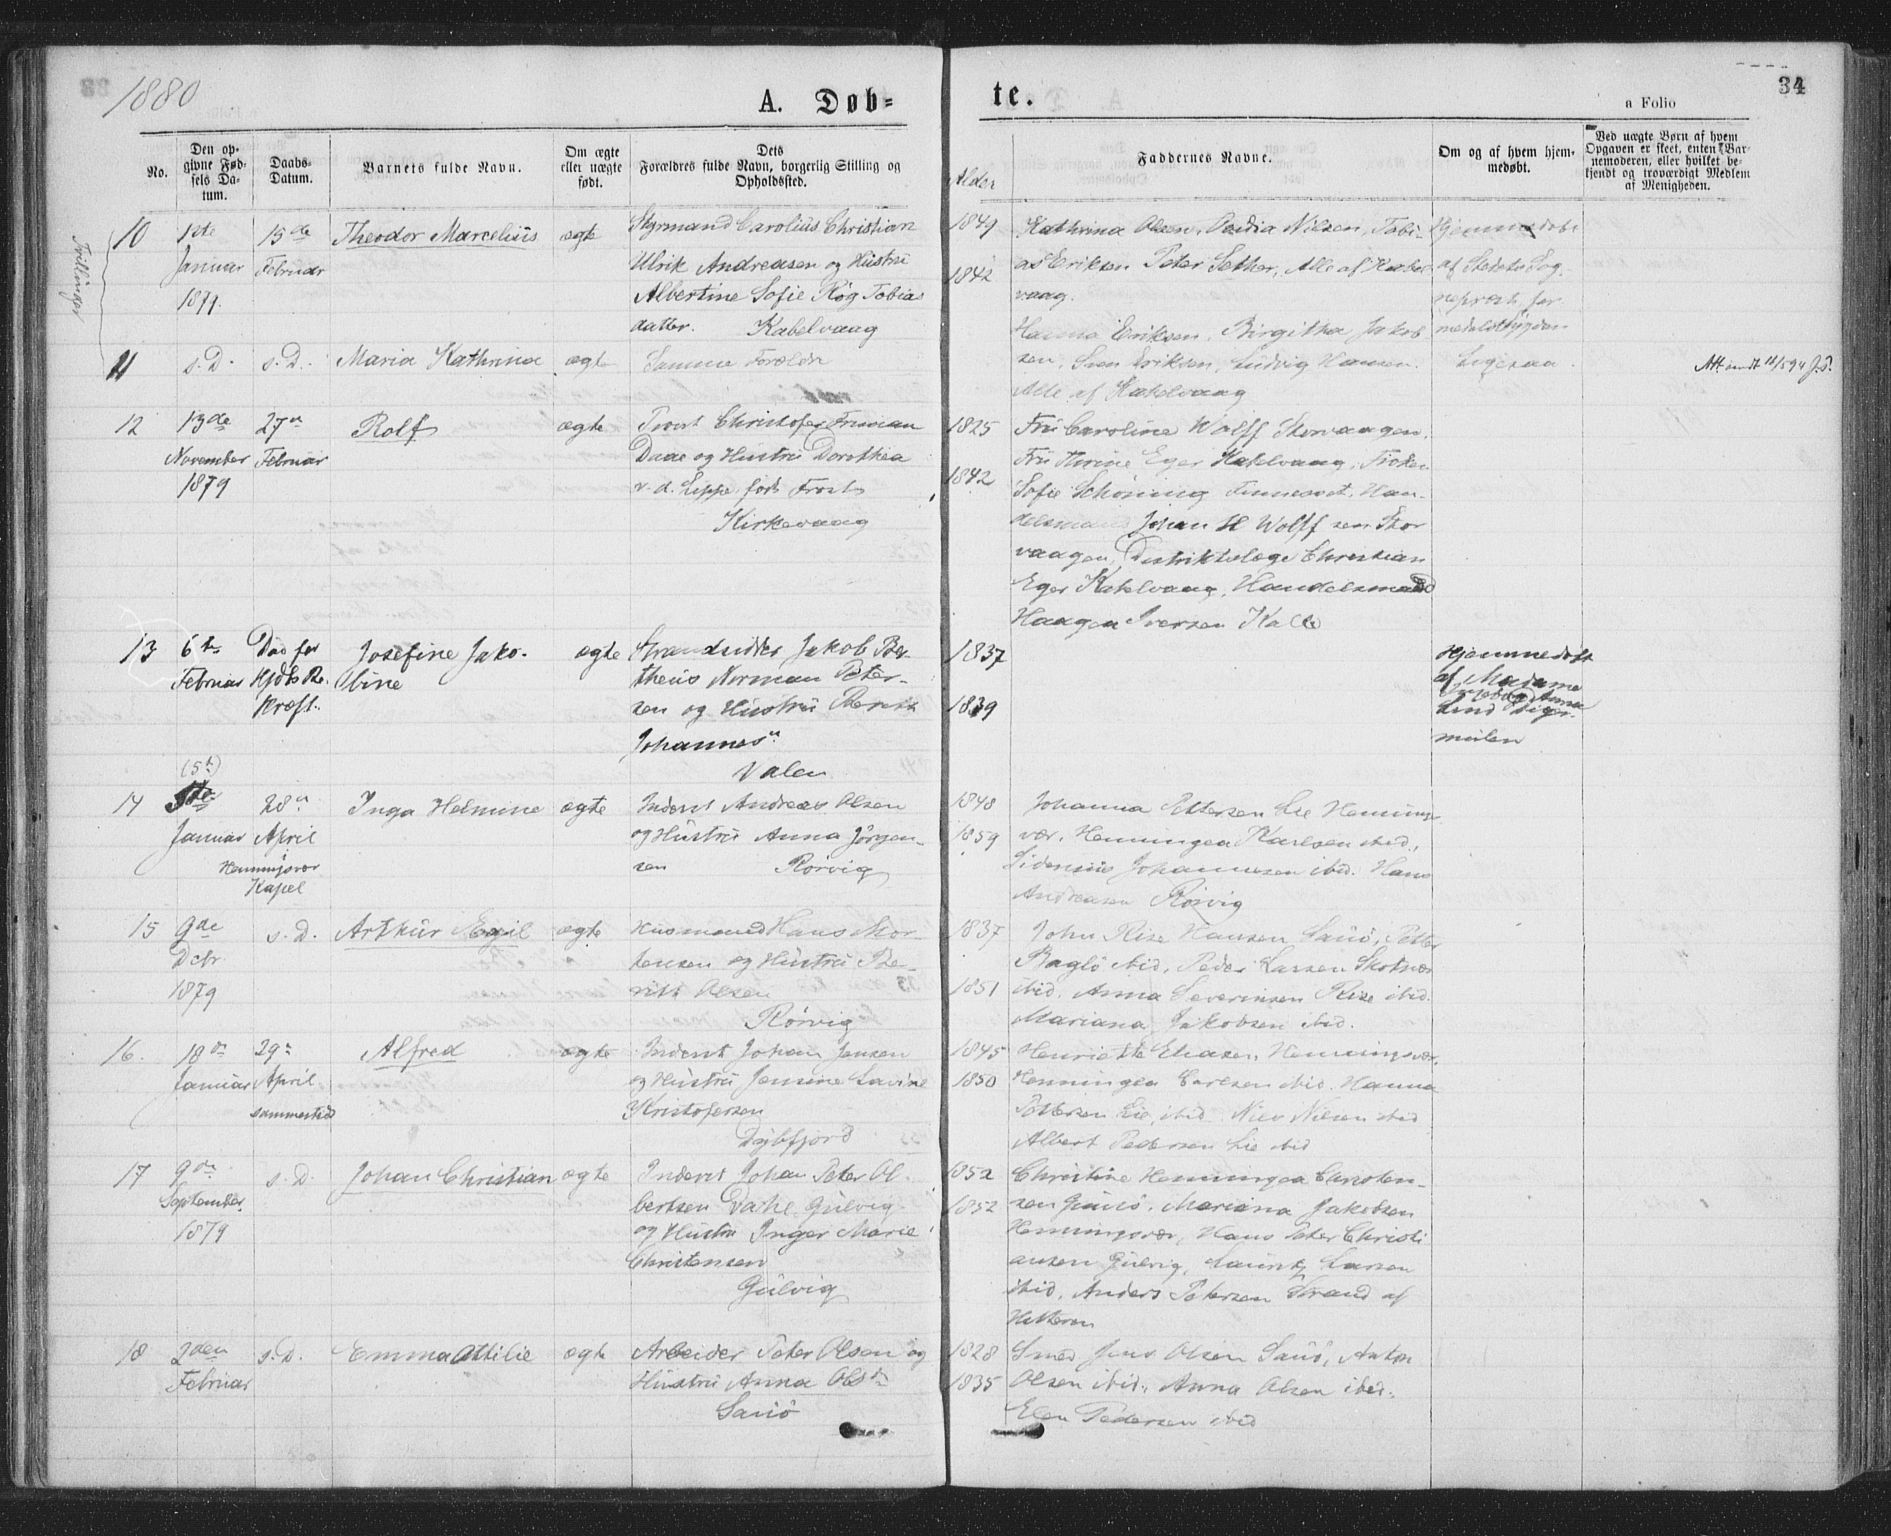 1880
A. Døb=
te.
34
a Folio
No.
Den op-
givne Fød-
sels Da-
tum.
Daabs-
Datum.
Barnets fulde Navn.
Om ægte
eller uægte
født.
Dets
Forældres fulde Navn, borgerlig Stilling og
Opholdssted.
Alder
Faddernes Navne.
Om og af hvem hjem-
medøbt.
Ved uægte Børn af hvem
Opgaven er skeet, enten Bar-
nemoderen, eller hvilket be-
kjendt og troværdigt Medlem
af Menigheden.
Tvillinger
10
1ste
Januar
1879.
15de
Februar
Theodor Marcelius
ægte
Styrmand Carolius Christian
Ulrik Andreasen og Hustru
Albertine Sofie Røg Tobias
datter. Kabelvaag
1849
1842
Kathrina Olsen, Nilsen, Tobi-
as Eriksen Peter Sether, Alle af Kabel
vaag.
Hjemmedøbt
af Stedets Sog-
neprest, for
11
s. D.
s. D.
Maria Kathrina
ægte
Samme Forældre
Hanna Eriksen, Birgitha Jakob
sen, Eriksen, Ludvig Hansen.
Alle af Kabelvaag
Ligesaa
12
13de
November
1879
27n
Februar
Rolf
ægte
Provst Christofer Friman
Daae og Hustru Dorothea
v. d. Lippe født Frost
Kirkevaag
1825
1842
Fru Caroline Wolff Storvaagen,
Fru Thrine Eger Kabelvaag, Frøken
Sofie Schöning Finnesvet, Han-
delsmand Johan H Wolff sen Stor
vaagen, Distriktslæge Christian
Eger Kabelvaag, Handelsmand
Haagen Iversen Kalle
13
6te
Februar
Død før
Hjdbs Be-
kræft.
Josefine Jako-
bine
ægte
Strandsidder Jakob Ber-
theus Norman Peter-
sen og Hustru Berit
Johannesn
Valen
1837
1839
Hjemmedøbt
af Madame
Anna
Lind
14
(5te)
Januar
28n
April
Henningsvær
Kapel
Inga Helmine
ægte
Inderst Andreas Olsen
og Hustru Anna Jørgen-
sen Rørvig
1848
1859
Johanna Pettersen Lie Hennings
vær, Henningea Karlsen ibid.,
Sidenius Johannesen ibid. Hans
Andreasen Rørvig
15
9de
Dcbr
1879
s. D.
Arthur Egil
ægte
Husmand Hans Mor-
tensen og Hustru Be-
ritt Olsen
Rørvig
1837
1851
John Rise Hansen Sauø, Petter
Raglø ibid, Peder Larsen Skotnes
ibid. Anna Severinsen Rise ibid.
Mariana Jakobsen ibid.
16.
18de
Januar
29n
April
sammested
Alfred
ægte
Inderst Johan Jensen
og Hustru Jensine Lavine
Kristofersen
Dybfjord
1845
1850
Henriette Eliasen, Henningsvær,
Henningea Carlsen ibid. Hanna
Pettersen Lie, ibid. Nils Nilsen ibid
Albert Pedersen Lie ibid
17
9de
September
1879
s. D.
Johan Christian
ægte
Inderst Johan Peter Ol-
bertsen Dahl Gulvig
og Hustru Inger Marie
Christensen
Gulvig
1852
1852
Christine Henningea Carsten-
sen Mariana Jakobsen
Henningsvær, Hans Peter Christi
ansen Gulvig, Lauritz Larsen
ibid, Anders Petersen Strand af
Hitteren
18
2den
Februar
s. D.
Emma Ottilie
ægte
Arbeider Peter Olsen og
Hustru Anna Olsdr
Sauø
1828
1835
Smed Jens Olsen Sauø, Anton
Olsen ibid., Anna Olsen ibid.
Elen Pedersen ibid